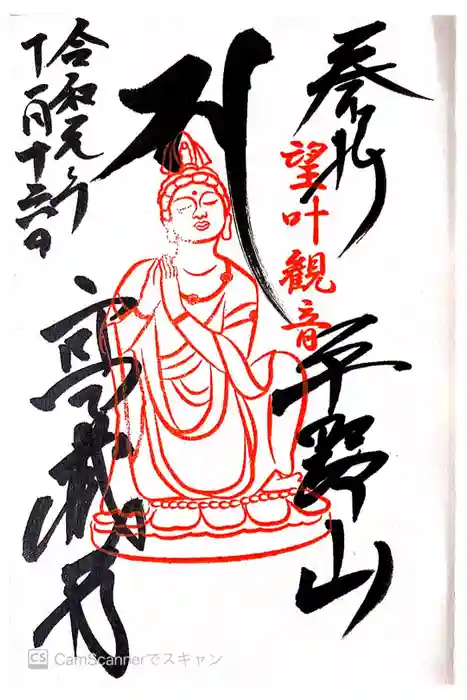 奉拝
望叶観音
草野山
高蔵寺
令和元年
十一月十六日
CS CamScannerでスキャン